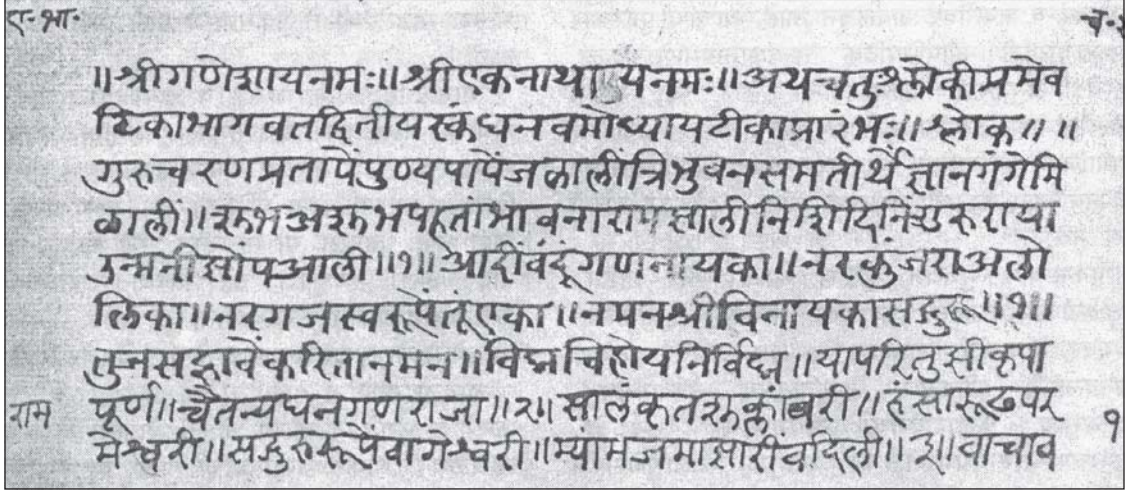 ए॰भा॰
च॰
॥श्रीगणेशायनमः॥श्रीएकनाथायनमः॥अथचतुःश्लोकीप्रमेव
टिकाभागवतद्वितीयस्कंधनवमोध्यायटीकाप्रारंभः॥श्लोक॥ ॥
गुरुचरणप्रतापेंपुण्यपापेंजळालींत्रिभुवनसमतीर्थेंज्ञानगंगेमि
ळालीं॥शुभअशुभपहातांभावनारामझालीनिशिदिनिंगुरुराया
उन्मनीझोंपआली॥१॥आदींवंदूंगणनायका॥नरकुंजराअलो
लिका॥नरगजस्वरूपेंतूंएका॥नमनश्रीविनायकासद्गुरू॥१॥
तुजसद्भावेंकरितानमन॥विघ्नचिहोयनिर्विघ्न॥यापरितुझीकृपा
राम
पूर्ण॥चैतन्यघनगणराजा॥२॥सालंकृतशुक्लांबरी॥हंसारूढपर
१
मेश्वरी॥सद्गुरुरूपेंवागेश्वरी॥म्यांमजमाझारींवंदिली॥३॥वाचाव